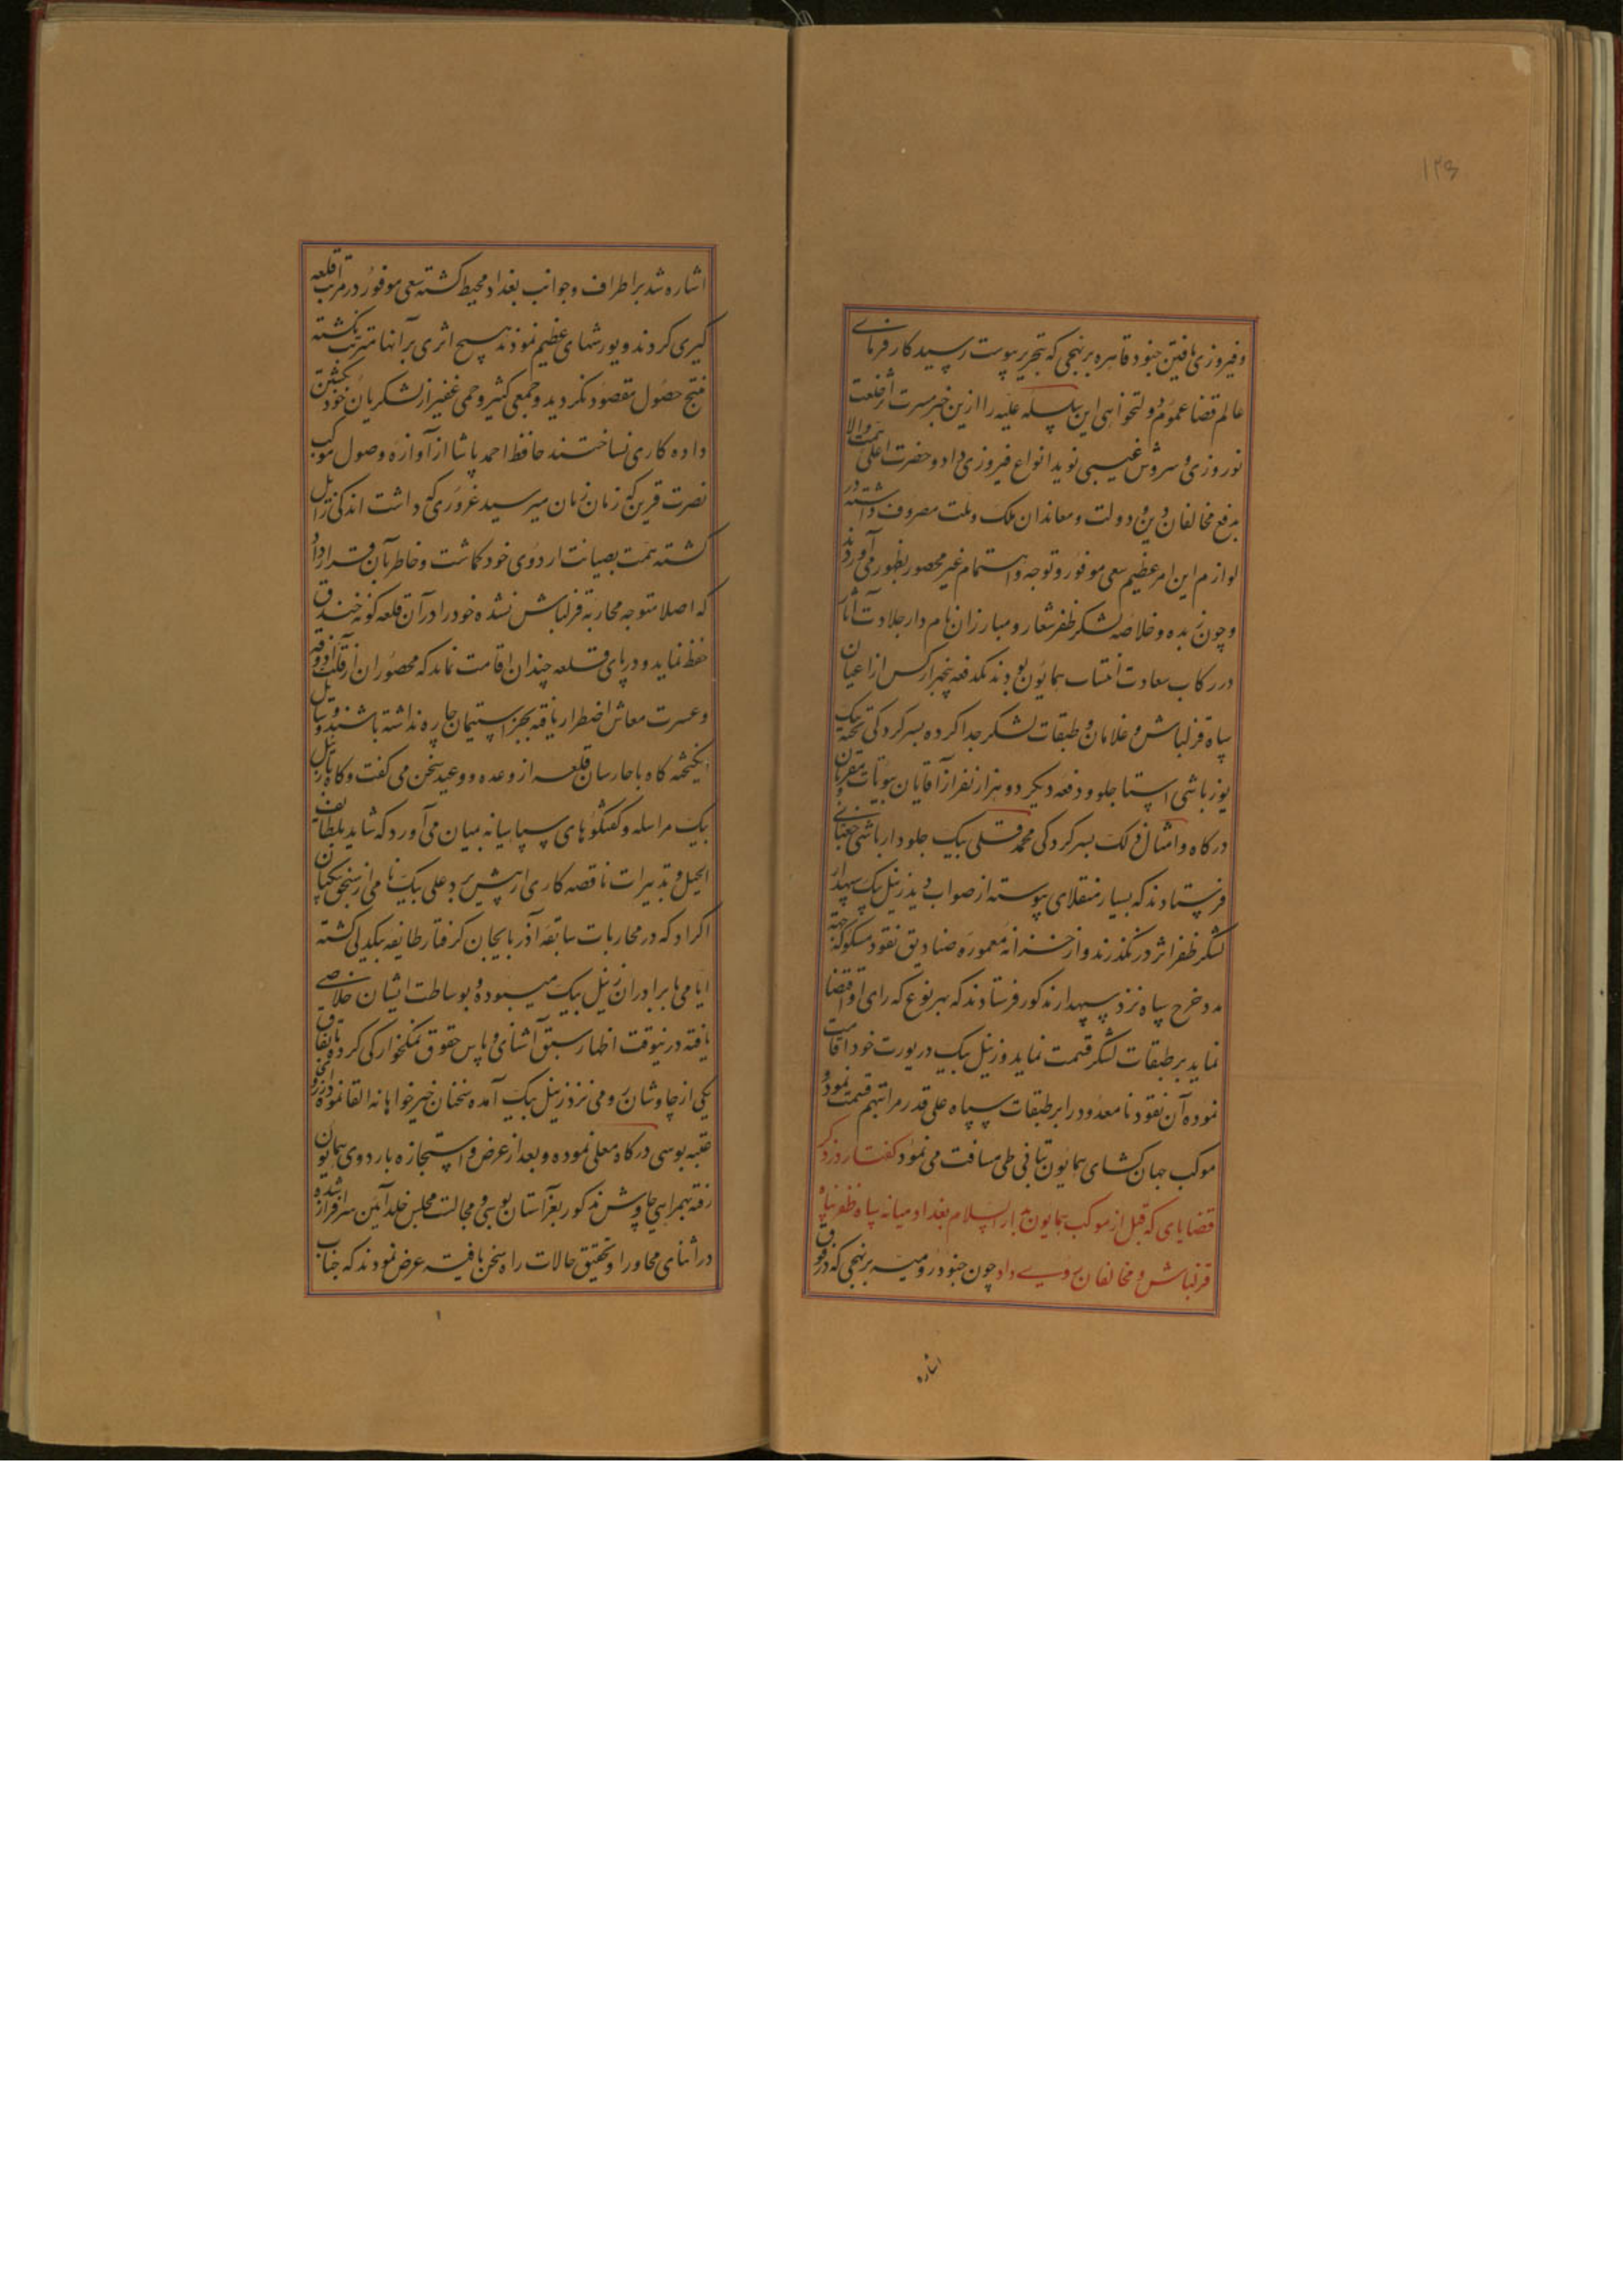 ۱۲۶
و فیروزی یافتن جنود قاهره بر نهجی که بتحریر پیوست رسید کار فرمای
عالم قضا عموم دولتخواهی این سلسله علیه را ازین خبر مسرت اثر خلعت
نوروزی و سروش غیبی نوید انواع فیروزی داد و حضرت اعلی همت والا
بدفع مخالفان دین و دولت و معاندان ملک و ملت مصروف داشته در
لوازم این امر عظیم سعی موفور و توجه و اهتمام غیر محصور بظهور می آوردند
و چون زبده و خلاصه لشکر ظفر شعار و مبارزان نام دار جلادت آثار
در رکاب سعادت انتساب همایون بودند یکدفعه پنجهزار کس از اعیان
سپاه قزلباش و غلامان و طبقات لشکر جدا کرده بسرکردگی تخته بیک
یوزباشی استاجلو و دفعه دیگر دو هزار نفر از آقایان بیوتات و مقربان
درگاه و امثال ذلک بسرکردگی محمد قلی بیک جلودار باشی چغنای
فرستادند که بسپاه منقلای پیوسته از صواب دید زینل بیک سپهدار
لشکر ظفر اثر در نگذرند و از خزانه معموره صنادیق نقود مسکوکه جهة
مدد خرج سپاه نزد سپهدار مذکور فرستادند که بهر نوع که رای او اقتضا
نماید بر طبقات لشکر قسمت نماید و زینل بیک در یورت خود اقامت
نموده آن نقود نامعدود را بر طبقات سپاه علی قدر مراتبهم قسمت نمود و
موکب جهان کشای همایون بتانی طی مسافت می نمود گفتار در ذکر
قضایای که قبل از موکب همایون بدار السلام بغداد میانه سپاه ظفر پناه
قزلباش و مخالفان روی داد چون جنود رومیه بر نهجی که در فوق
اشاره
اشاره شد بر اطراف و جوانب بغداد محیط گشته سعی موفور در مراتب قلعه
گیری کردند و یورشهای عظیم نمودند هیچ اثری بر آنها مترتب نگشته
منتج حصول مقصود نگردید و جمعی کثیر و جمی غفیر از لشکریان خود بکشتن
داده کاری نساختند حافظ احمد پاشا از آوازه وصول موکب
نصرت قرین که زمان زمان میرسید غروری که داشت اندکی زایل
گشته همت بصیانت اردوی خود گماشت و خاطر بآن قرار داد
که اصلا متوجه محاربه قزلباش نشده خود را در آن قلعه گونه خندق
حفظ نماید و در پای قلعه چندان اقامت نماید که محصوران از قلت آذوقه
و عسرت معاش اضطرار یافته بجز استیمان چاره نداشته باشند و حیل
انگیخته گاه با حارسان قلعه از وعده و وعید سخن می گفت و گاه با زینل
بیک مراسله و گفتگوهای سپاهیانه بمیان می آورد که شاید بلطایف
الحیل و تدبیرات ناقصه کاری از پیش برد علی بیک نامی از سنجق بیگیان
اکراد که در محاربات سابقه آذربایجان گرفتار طایفه بیکدلی گشته
ایامی با برادران زینل بیک میبوده و بوساطت ایشان خلاصی
یافته درینوقت اظهار سبق آشنای و پاس حقوق نمکخوارگی کرده باتفاق
یکی از چاوشان رومی نزد زینل بیک آمده سخنان خیرخواهانه القا نموده آرزوی
عتبه بوسی درگاه معلی نموده و بعد از عرض و استجازه باردوی همایون
رفته بهمراهی چاوش مذکور بعز آستان بوسی و مجالست مجلس خلد آئین سرافراز شده
در اثنای محاورا و تحقیق حالات راه سخن یافته عرض نمودند که جناب